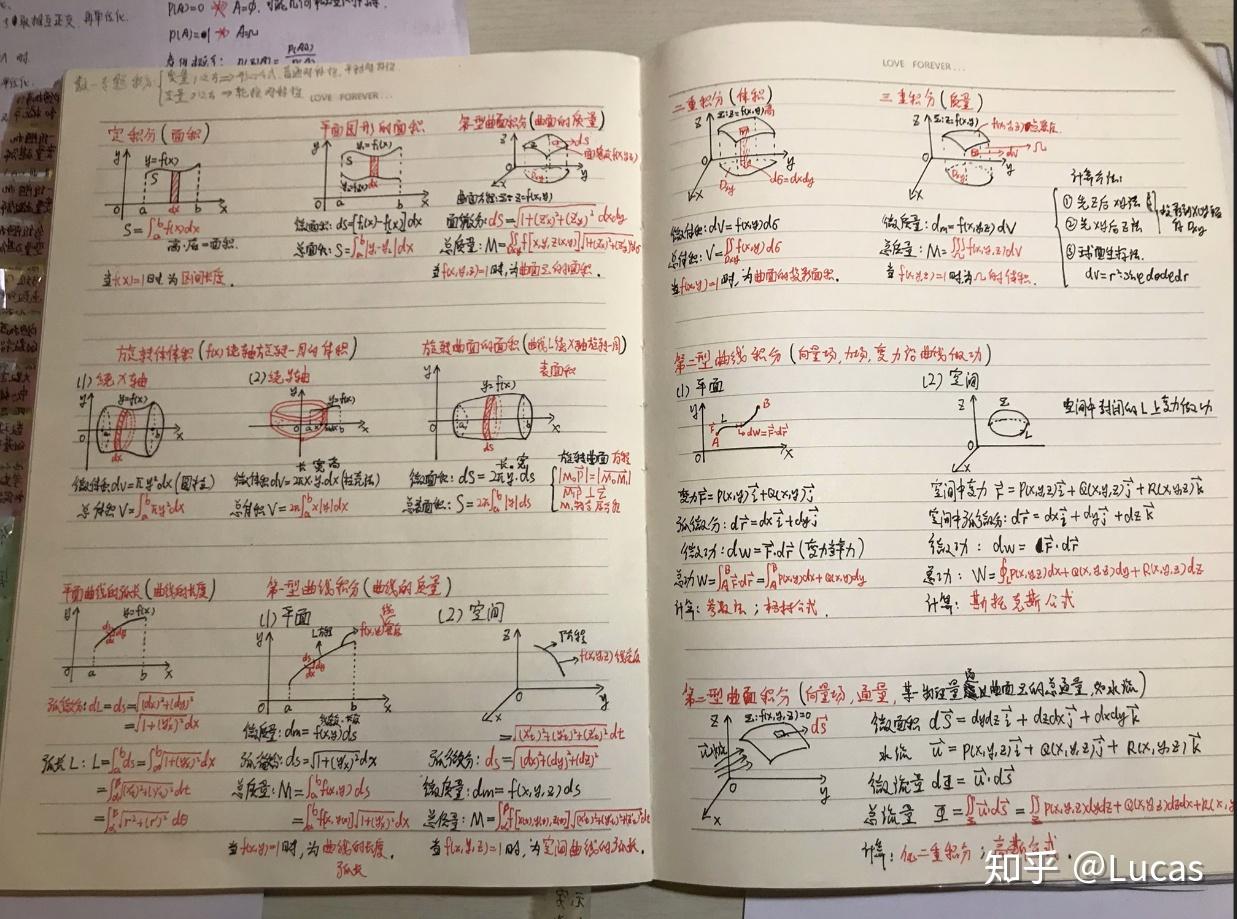 P(A)=0 ⇏ A=∅
P(A)=1 ⇏ A=Ω
LOVE FOREVER...
定积分(面积)
y=f(x)
S=∫_a^b f(x)dx
高·底=面积.
当f(x)=1时,为区间长度.
平面图形的面积
微面积: ds=[f₂(x)-f₁(x)]dx
总面积: S=∫_a^b|y₂-y₁|dx
第一型曲面积分(曲面的质量)
曲面方程: Σ: z=f(x,y)
面微分: ds=√(1+(Z'x)²+(Z'y)²) dxdy
总质量: M=∬_Dxy f[x,y,z(x,y)]√(1+(Z'x)²+(Z'y)²)dδ
当f(x,y,z)=1时,为曲面Σ的面积.
旋转体体积(f(x)绕轴旋转一周的体积)
(1)绕X轴
y=f(x)
微体积dv=πy²dx(圆柱)
总体积V=∫_a^b πy²dx
(2)绕y轴
y=f(x)
长 宽 高
微体积dv=2πx·y·dx(柱壳法)
总体积V=2π∫_a^b x|y|dx
旋转曲面的面积(曲线L绕X轴旋转一周)
表面积
y=f(x)
长·宽
微面积: ds=2πy·ds
总表面积: S=2π∫_a^b|y|ds
旋转曲面方程
|M₀P|=|M₀M₁|
平面曲线的弧长(曲线的长度)
y=f(x)
弧微分: dL=ds=√((dx)²+(dy)²)
=√(1+(y'x)²)dx
弧长L: L=∫_a^b ds=∫_a^b √(1+(y'x)²)dx
=∫_α^β √((x't)²+(y't)²)dt
=∫_α^β √(r²+(r')²) dθ
第一型曲线积分(曲线的质量)
(1)平面
L方程
f(x,y)线密度
微质量: dm=f(x,y)ds
弧微分: ds=√(1+(y'x)²)dx
总质量: M=∫_a^b f(x,y)ds
=∫_a^b f[x,y(x)]√(1+(y'x)²)dx
当f(x,y)=1时,为曲线的长度.
弧长
(2)空间
Γ方程
f(x,y,z)线密度
=√((x't)²+(y't)²+(z't)²)dt
弧微分: ds=√((dx)²+(dy)²+(dz)²)
微质量: dm=f(x,y,z)ds
总质量: M=∫_α^β f[x(t),y(t),z(t)]√((x't)²+(y't)²+(z't)²)dt
当f(x,y,z)=1时,为空间曲线的弧长.
LOVE FOREVER...
二重积分(体积)
Σ: z=f(x,y)高
Dxy
dδ=dxdy
微体积: dV=f(x,y)dδ
总体积: V=∬_Dxy f(x,y)dδ
当f(x,y)=1时,为曲面的投影面积.
三重积分(质量)
Σ: z=f(x,y)
f(x,y,z)点密度
Ω
dv
Dxy
微质量: dm=f(x,y,z)dV
总质量: M=∭_Ω f(x,y,z)dV
当f(x,y,z)=1时为Ω的体积.
计算方法:
①先Z后xy法
②先xy后Z法
③球面坐标法.
dv=r²sinφdθdφdr
第二型曲线积分(向量场,力场,变力沿曲线做功)
(1)平面
dw=F·dr
变力F=P(x,y)i+Q(x,y)j
弧微分: dr=dxi+dyj
微功: dw=F·dr(变力)
总功W=∫_A^B F·dr=∫_A^B P(x,y)dx+Q(x,y)dy
计算: 参数法; 格林公式.
(2)空间
空间中封闭曲线L上变力做功
空间中变力 F=P(x,y,z)i+Q(x,y,z)j+R(x,y,z)k
空间中弧微分: dr=dxi+dyj+dzk
微功: dw=F·dr
总功: W=∮_L P(x,y,z)dx+Q(x,y,z)dy+R(x,y,z)dz
计算: 斯托克斯公式
第二型曲面积分(向量场,通量,某物理量流过曲面Σ的总通量,如水流)
Σ: f(x,y,z)=0
dS
微面积 dS=dydzi+dzdxj+dxdyk
水流 u=P(x,y,z)i+Q(x,y,z)j+R(x,y,z)k
微流量 dΦ=u·dS
总流量 Φ=∬_Σ u·dS=∬_Σ P(x,y,z)dydz+Q(x,y,z)dzdx+R(x,y
计算: 化二重积分; 高斯公式.
知乎 @Lucas